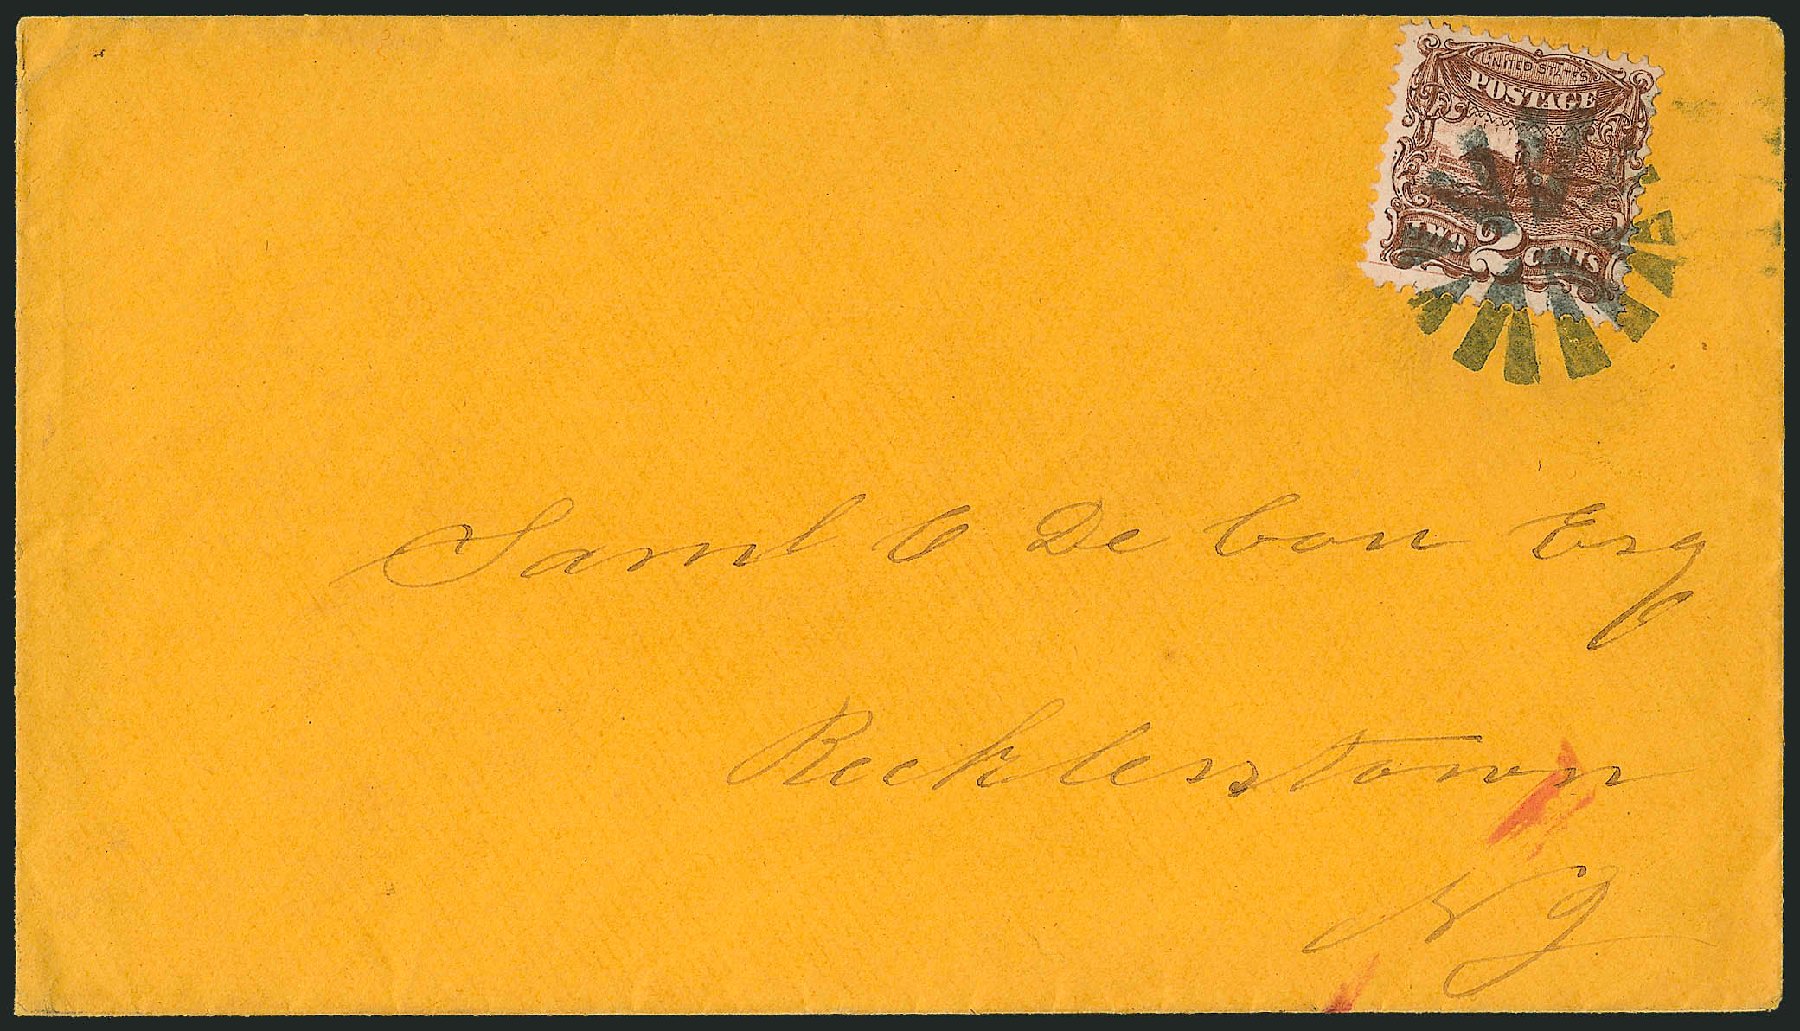 UNITED STATES
POSTAGE
TWO 2 CENTS
Saml C De Cou Esq
Recklesstown
N J